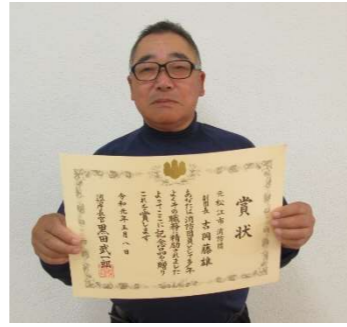 賞状
元 松江市消防団
副団長 古岡藤雄
あなたは消防団員として多年
よくその職務に精励されました
よってここに記念品を贈り
これを賞します
令和元年五月八日
消防庁長官 黒田武一郎